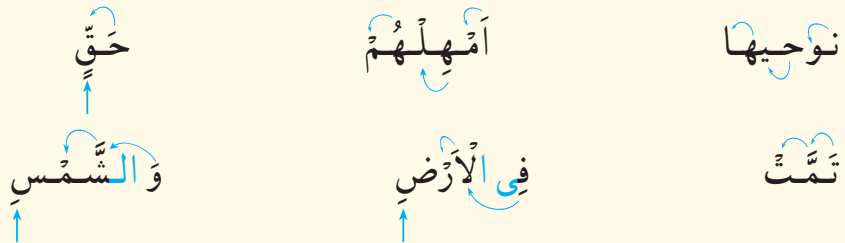 نوحيها اَمْهِلْهُمْ حَقٍّ
تَمَّتْ فِى الْاَرْضِ وَ الشَّمْسِ